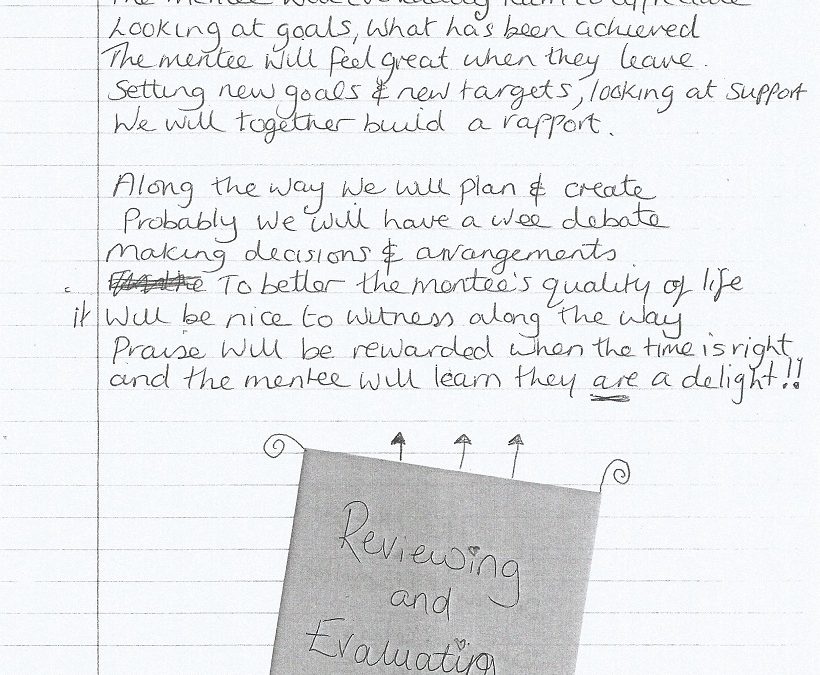 Looking at goals, what has been achieved
The mentee will feel great when they leave.
Setting new goals & new targets, looking at support
We will together build a rapport.
Along the way we will plan & create
Probably we will have a wee debate
Making decisions & arrangements
To better the mentee's quality of life
it will be nice to witness along the way
Praise will be rewarded when the time is right,
and the mentee will learn they are a delight!!
Reviewing
and
Evaluating